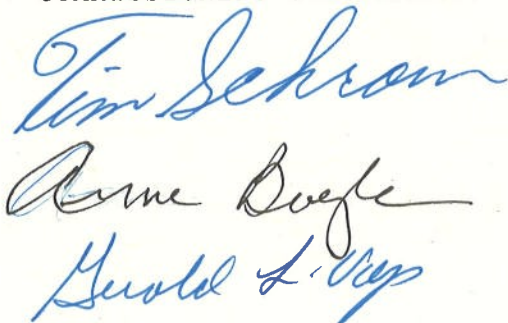 Tim Schrom
Anne Boyle
Gerold L.